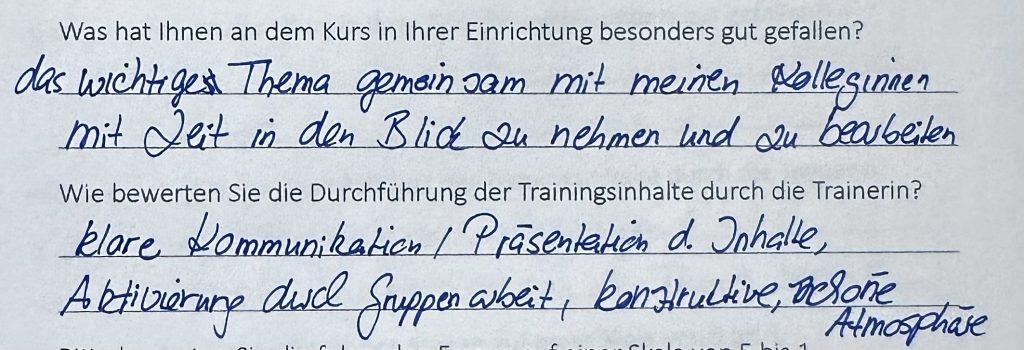 Was hat Ihnen an dem Kurs in Ihrer Einrichtung besonders gut gefallen?
das wichtige Thema gemeinsam mit meinen Kolleginnen
mit Zeit in den Blick zu nehmen und zu bearbeiten
Wie bewerten Sie die Durchführung der Trainingsinhalte durch die Trainerin?
klare Kommunikation / Präsentation d. Inhalte,
Aktivierung durch Gruppenarbeit, konstruktive, schöne
Atmosphäre